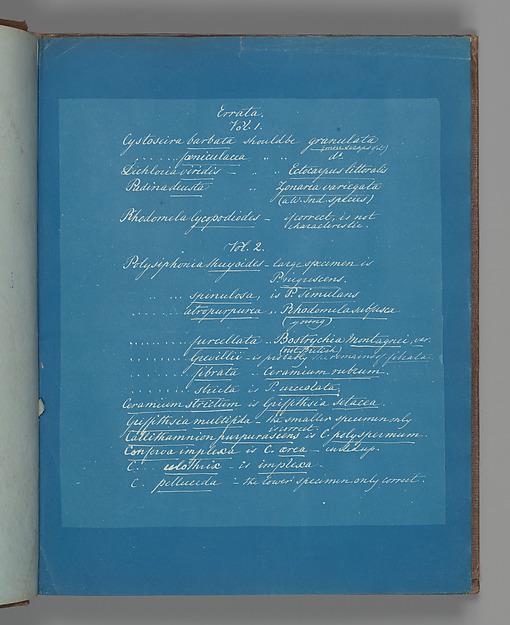 Errata.
Vol. 1.
Cystoseira barbata should be granulata
........ fœniculacea " " do
Dichloria viridis — " " Ectocarpus littoralis
Padina deusta " Zonaria variegata
(a W. Ind. species)
Rhodomela lycopodiodes — if correct, is not
characteristic.
Vol. 2.
Polysiphonia thuyoides — large specimen is
P. nigrescens.
" .... spinulosa, is P. Simulans
" ...... atropurpurea " Rhodomela subfusca
(young)
........ furcellata " Bostrychia Montagnei, var.
(not British)
........ Grevillii — is probably the remains of
........ fibrata " Ceramium rubrum
........ stricta is P. urceolata,
Ceramium strictum is Griffithsia setacea.
Griffithsia multifida — the smaller specimen only
is correct.
Callithamnion purpurascens is C. polyspermum.
Conferva implexa is C. ærea — curled up.
C. " is implexa.
C. pellucida — the lower specimen only correct.